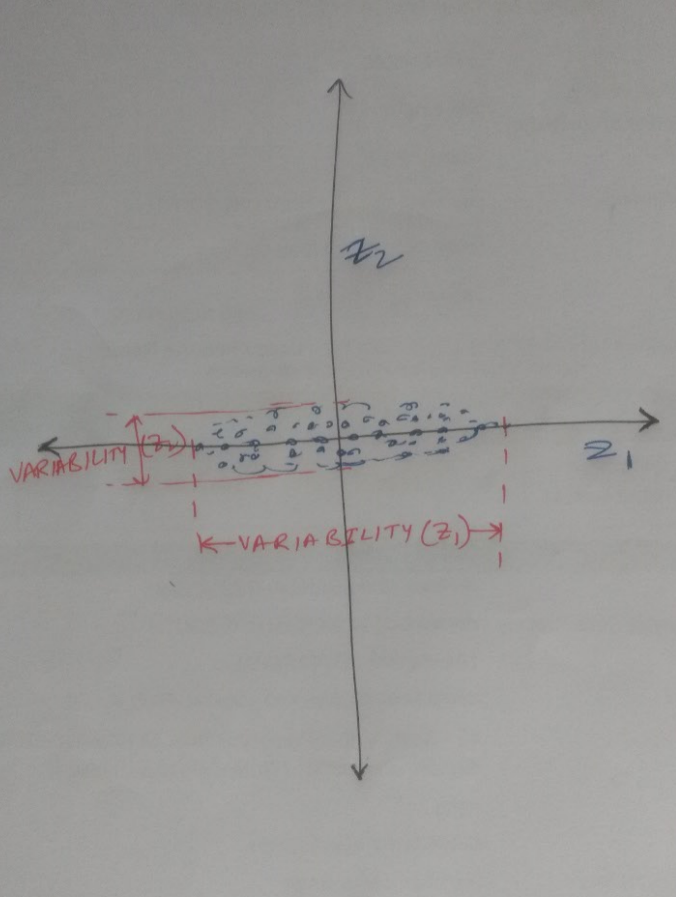 Z2
VARIABILITY (Z2)
Z1
VARIABILITY (Z1)